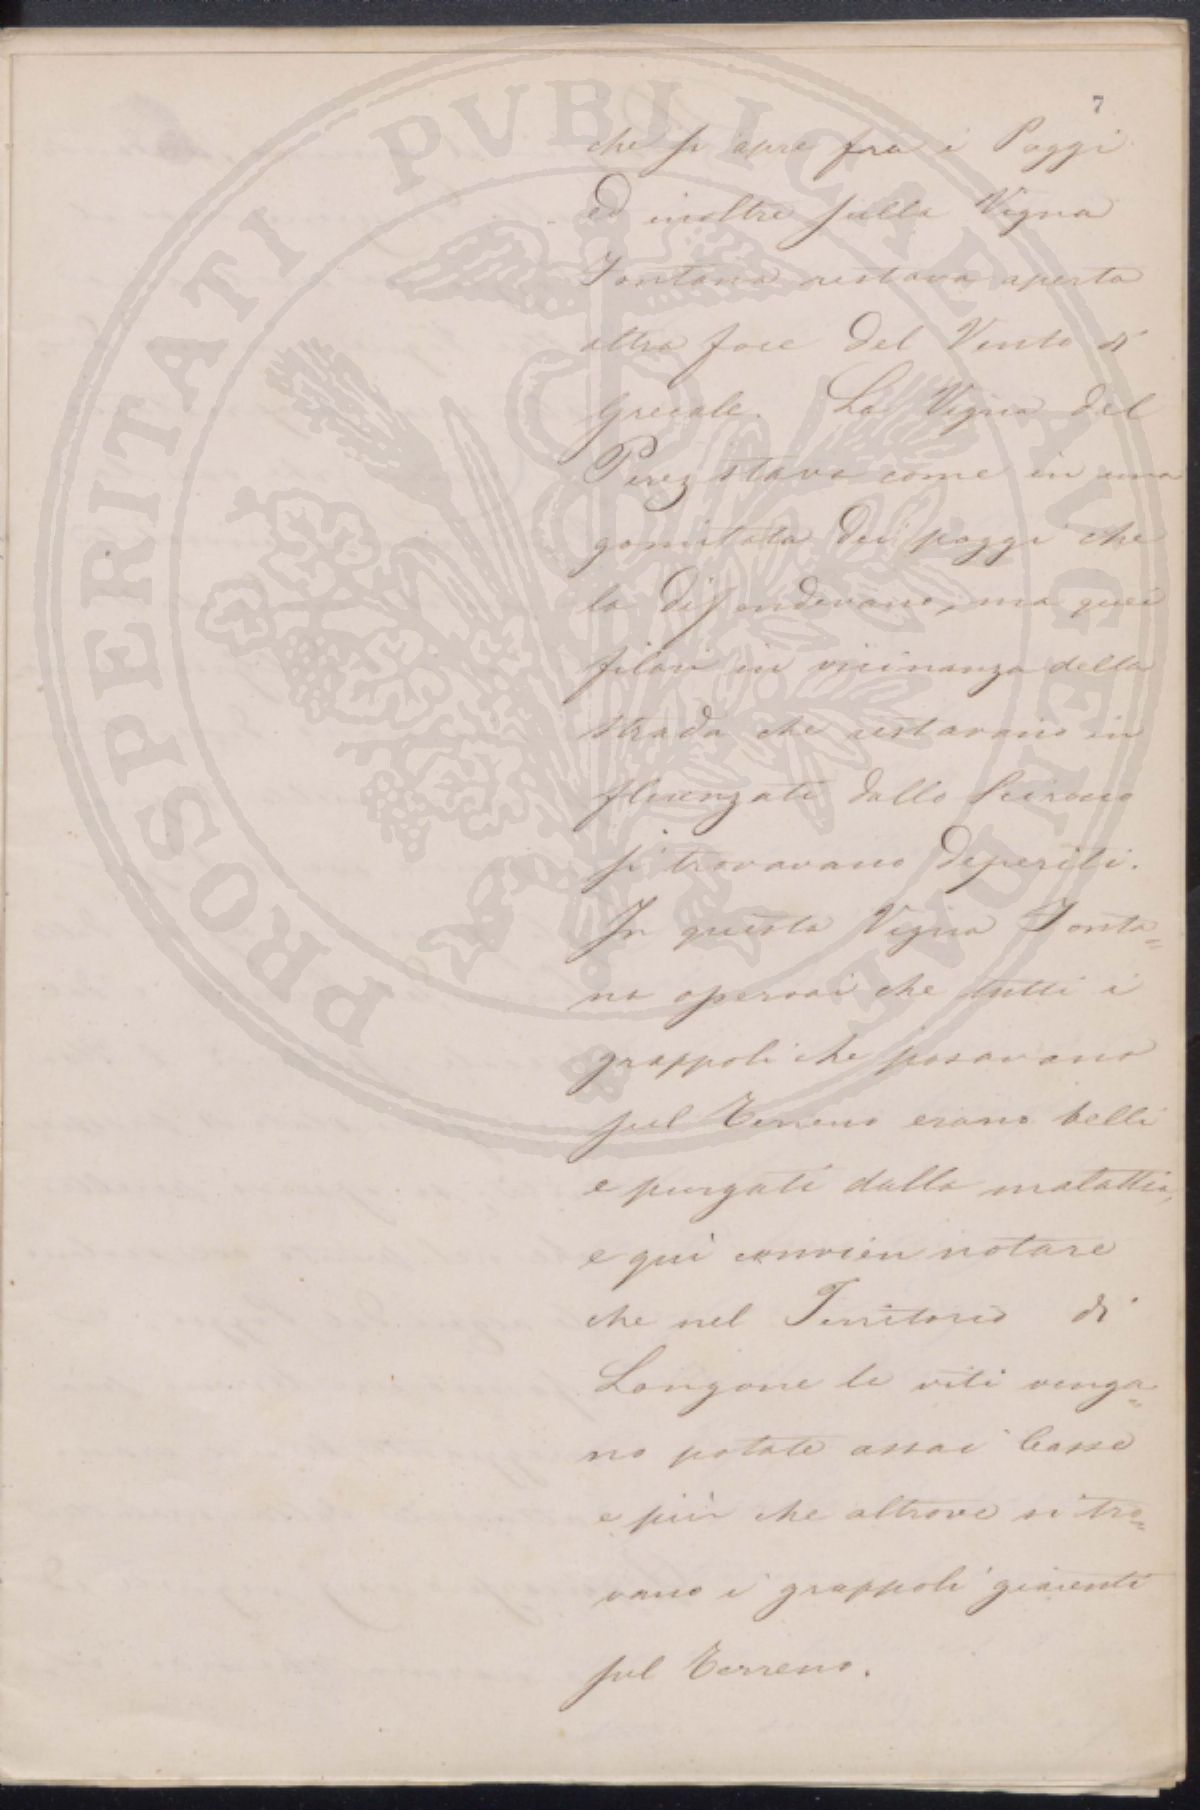 7
che si apre fra i Poggi
ed inoltre sulla Vigna
Fontana restava aperta
altra foce del Vento di
Grecale. La Vigna del
Perez stava come in una
gomitata dei poggi che
la difendevano, ma quei
filari in vicinanza della
strada che restavano in
fluenzati dallo Scirocco
si trovavano deperiti.
In questa Vigna Fonta=
na osservai che tutti i
grappoli che posavano
sul Terreno erano belli
e purgati dalla malattia,
e quì convien notare
che nel Territorio di
Longone le viti venga=
no potate assai basse
e più che altrove si tro=
vano i grappoli giacenti
sul Terreno.
PROSPERITATI PVBLICAE AVGENDAE